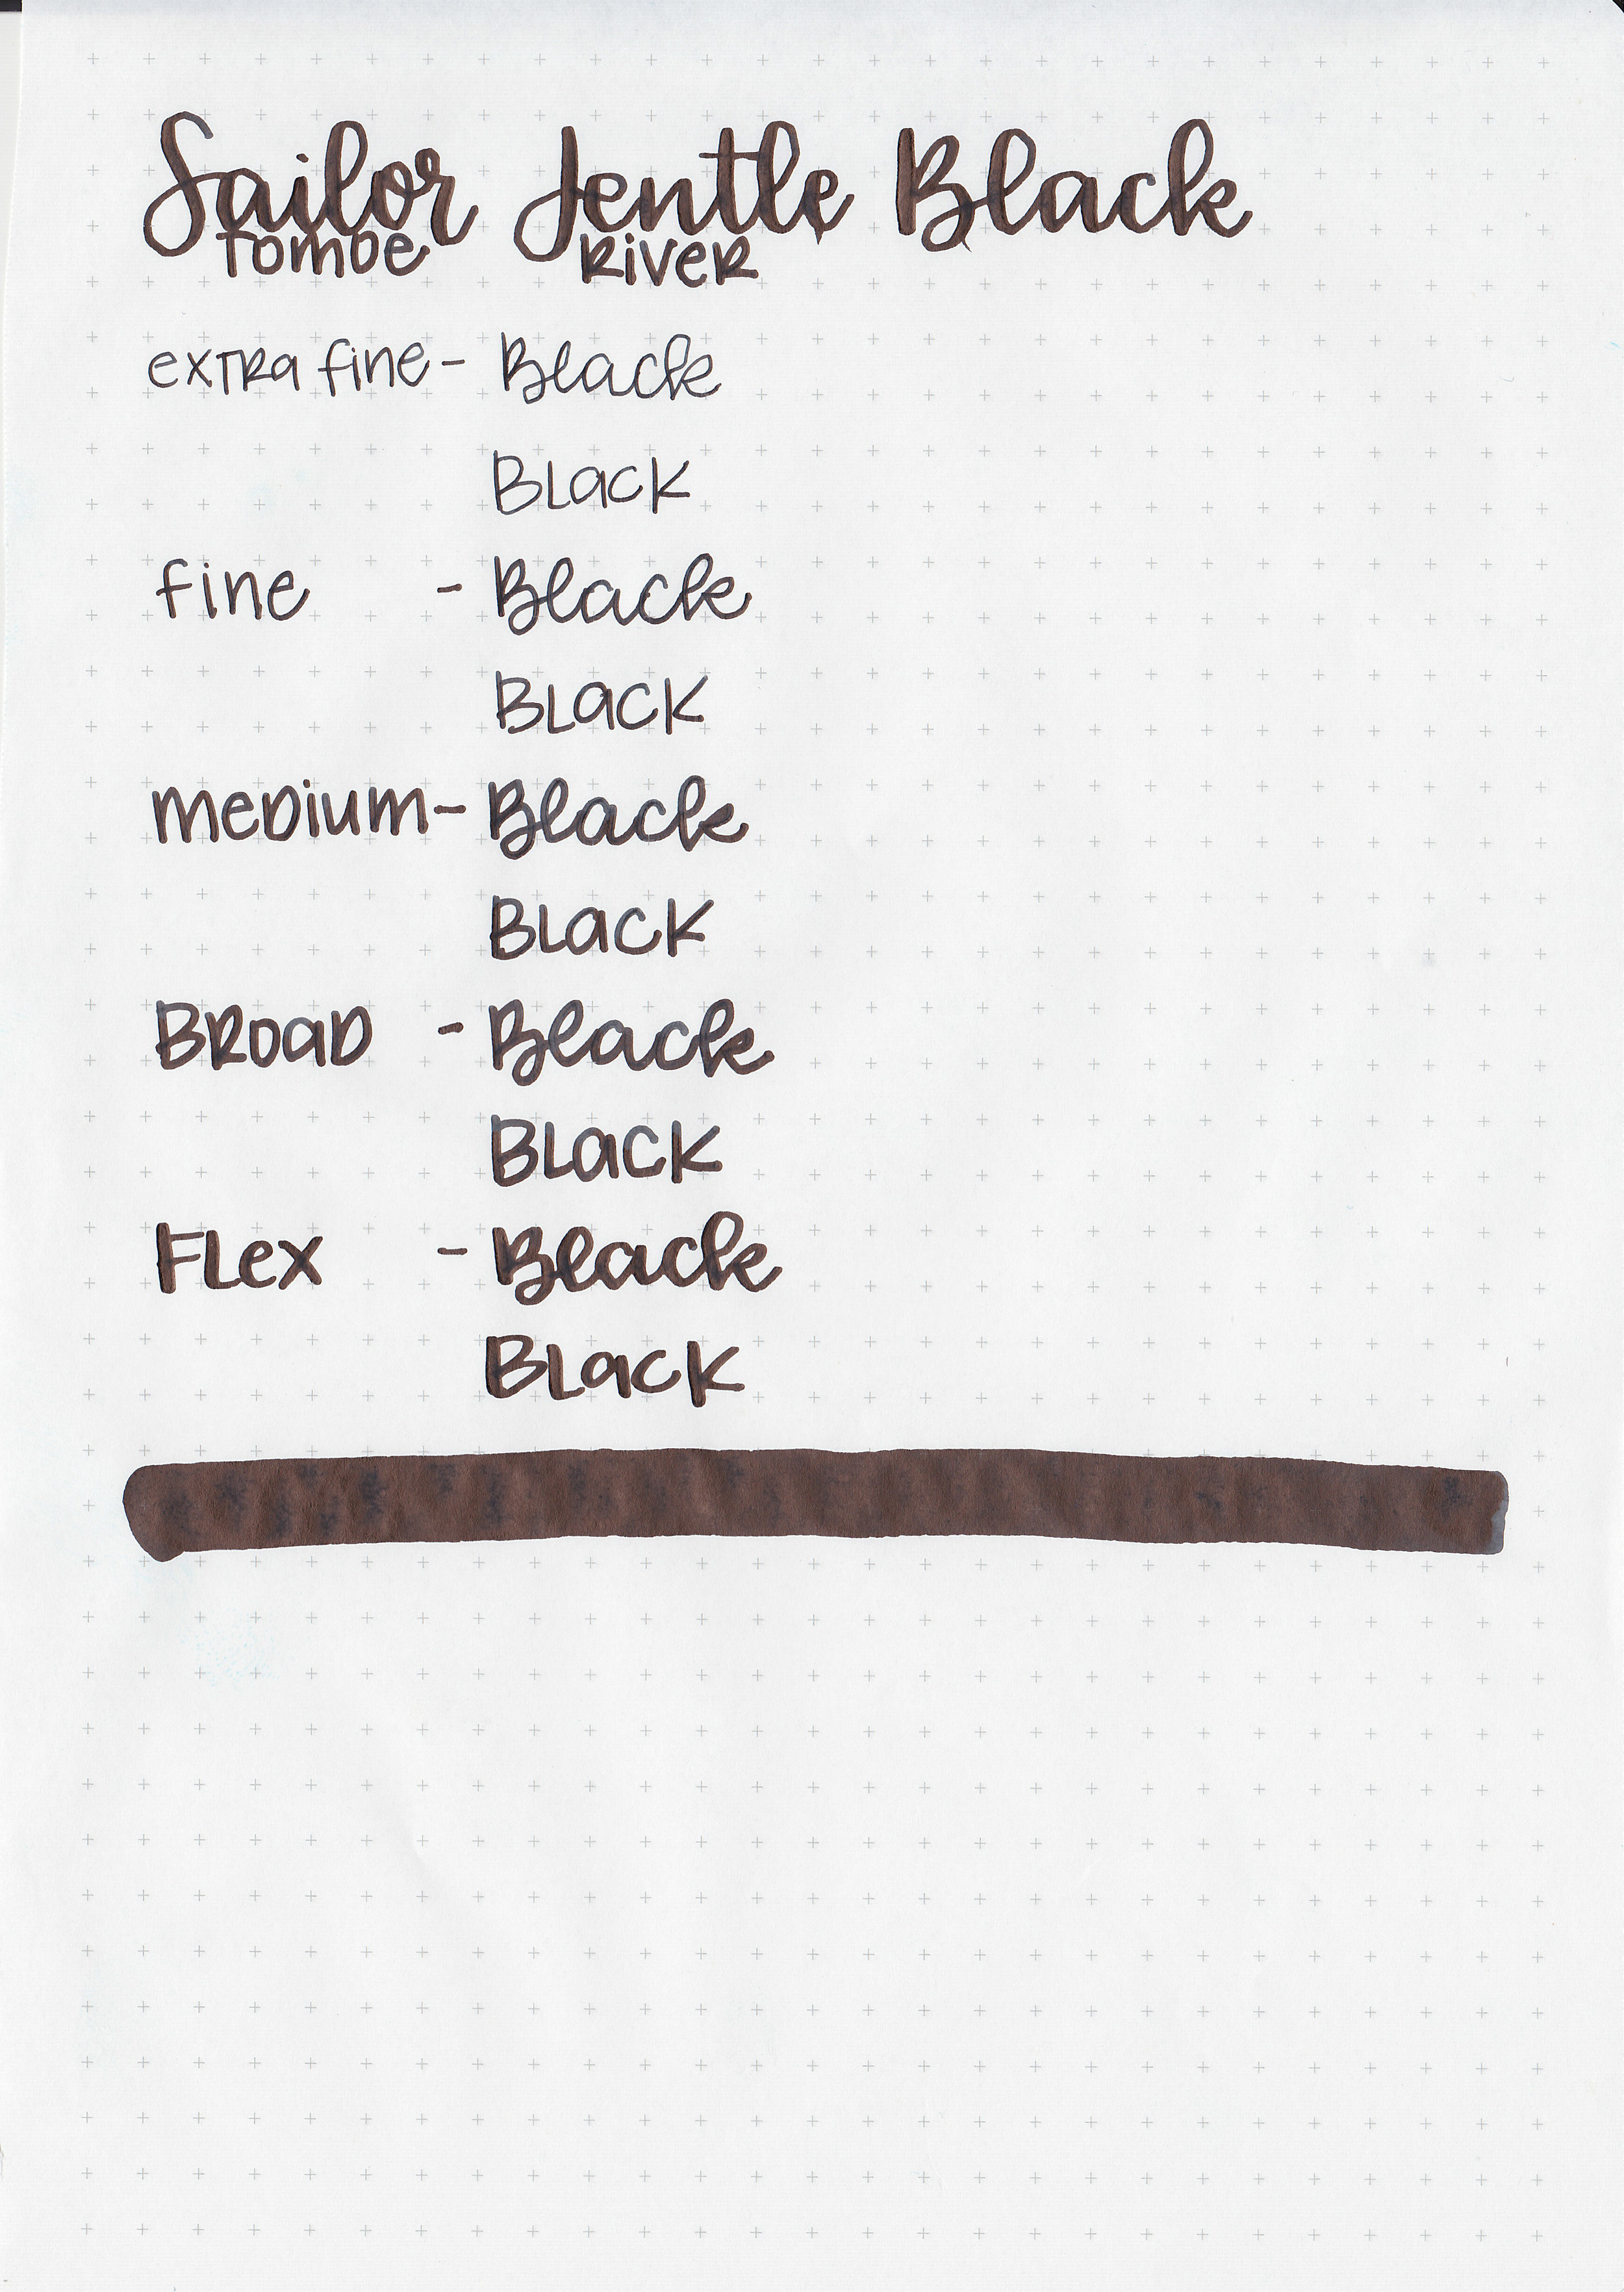 Sailor Jentle Black
Tomoe River
extra fine - Black
Black
fine - Black
Black
medium - Black
Black
Broad - Black
Black
Flex - Black
Black